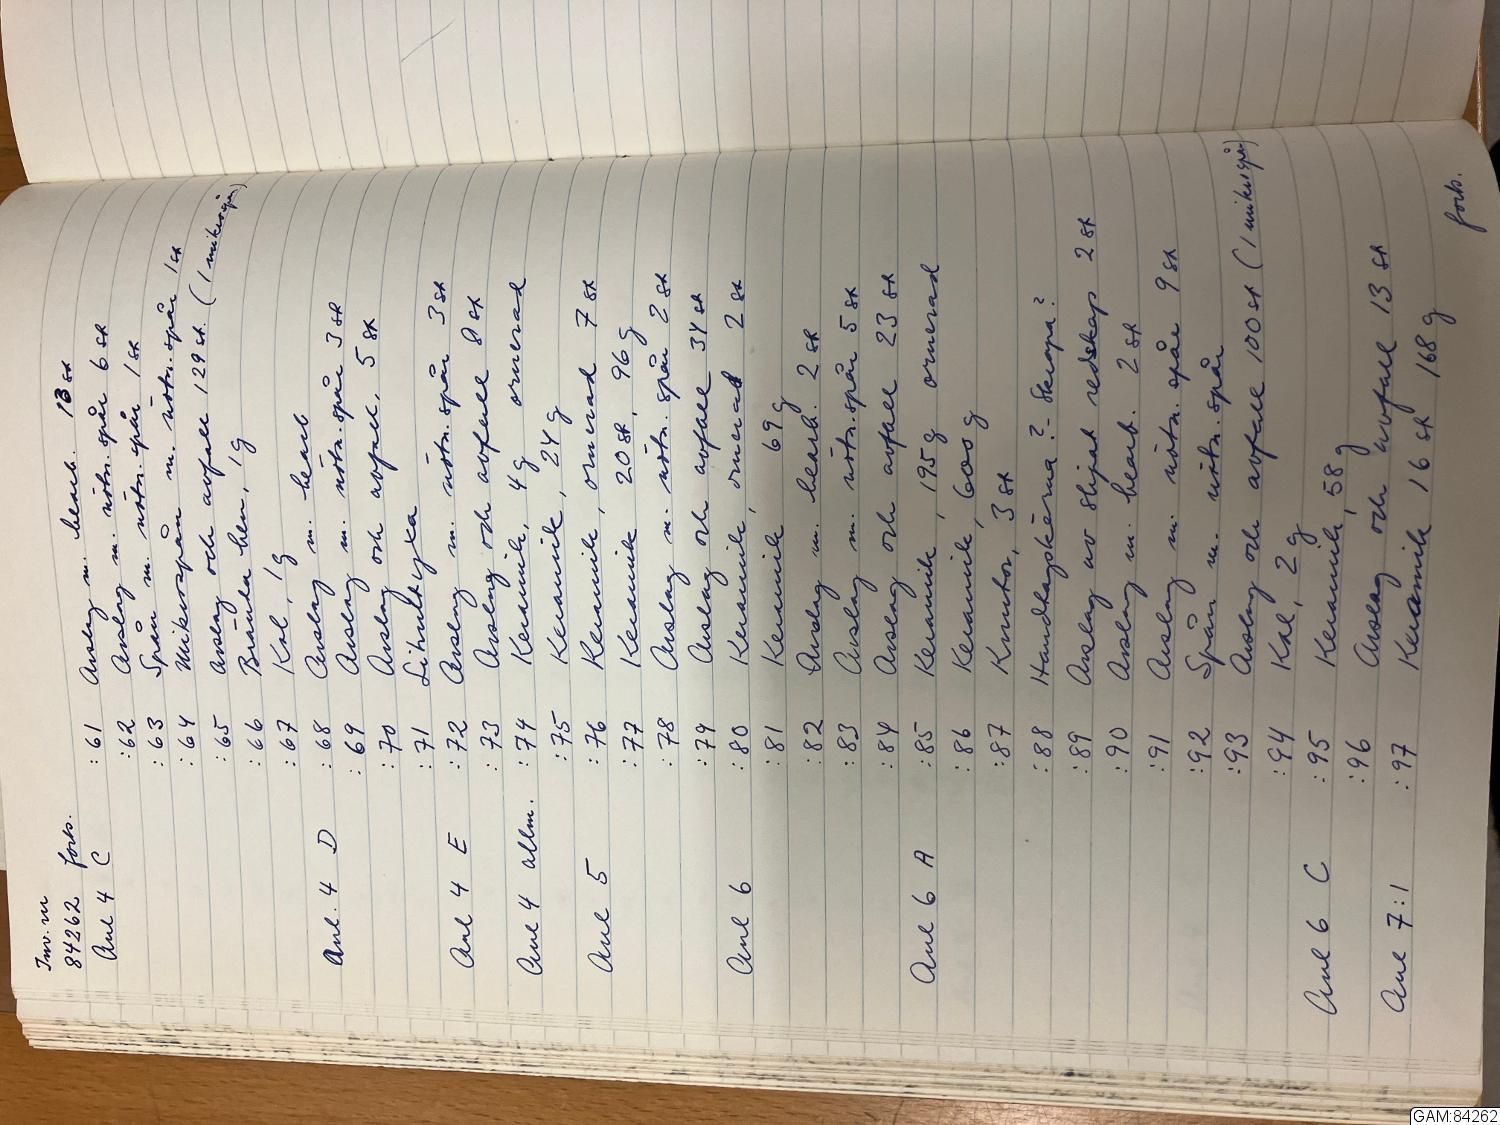 Inv. nr
84262 forts.
Anl 4 C :61 Avslag m. bearb. 13 st
:62 Avslag m. nötn. spår 6 st
:63 Spån m. nötn. spår 1 st
:64 Mikrospån m. nötn. spår 1 st
:65 Avslag och avfall 129 st. (1 mikrospån)
:66 Brända ben, 1g
:67 Kol, 1g
Anl. 4 D :68 Avslag m. bearb
:69 Avslag m. nötn. spår 3 st
:70 Avslag och avfall, 5 st
:71 Lihultyxa
Anl 4 E :72 Avslag m. nötn. spår 3 st
:73 Avslag och avfall 8 st
Anl 4 allm. :74 Keramik, 4g ornerad
:75 Keramik, 24 g
Anl 5 :76 Keramik, ornerad 7 st
:77 Keramik 20 st, 96 g
:78 Avslag m. nötn. spår 2 st
:79 Avslag och avfall 34 st
Anl 6 :80 Keramik, ornerad 2 st
:81 Keramik 69 g
:82 Avslag m. bearb. 2 st
:83 Avslag m. nötn. spår 5 st
:84 Avslag och avfall 23 st
Anl 6 A :85 Keramik, 195 g ornerad
:86 Keramik, 600 g
:87 Knutor, 3 st
:88 Handtagskärna? - Skrapa?
:89 Avslag av slipat redskap 2 st
:90 Avslag m. bearb. 2 st
:91 Avslag m. nötn. spår 9 st
:92 Spån m. nötn. spår
:93 Avslag och avfall 100 st (1 mikrospån)
:94 Kol, 2 g
Anl 6 C :95 Keramik, 58 g
:96 Avslag och avfall 13 st
Anl 7:1 :97 Keramik 16 st 168 g
forts.
GAM:84262